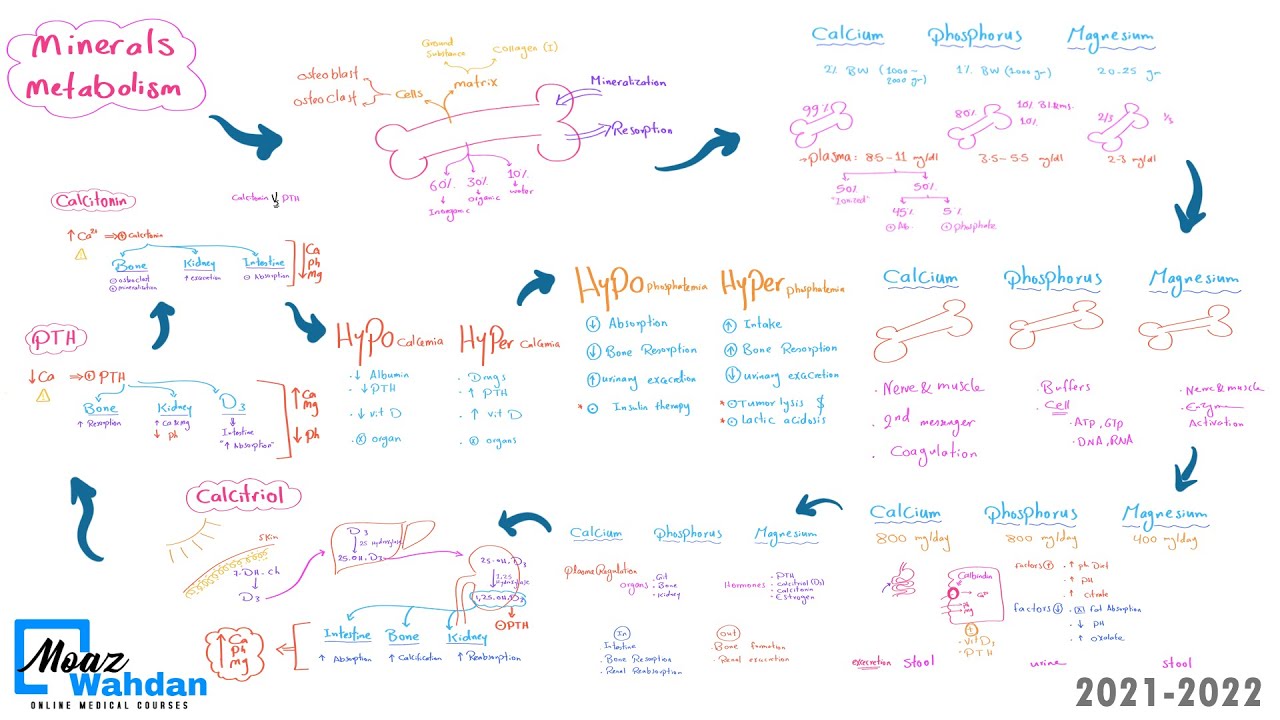 Minerals
metabolism
osteoblast
osteoclast
Cells
Ground
Substance
Collagen (I)
matrix
Mineralization
Resorption
60%
Inorganic
30%
organic
10%
water
Calcium
Phosphorus
Magnesium
2% BW (1000-
2000 gr)
1% BW (1000 gr)
20-25 gr
99%
80%
10% 
10%
2/3
1/3
→ plasma: 8.5-11 mg/dl
3.5-5.5 mg/dl
2-3 mg/dl
50%
"Ionized"
50%
45%
⊕ Alb.
5%
⊕ phosphate
Calcium
Phosphorus
Magnesium
. Nerve & muscle
. 2nd messenger
. Coagulation
. Buffers
. Cell
. ATP, GTP
. DNA, RNA
. Nerve & muscle
. Enzyme
Activation
Calcium
Phosphorus
Magnesium
800 mg/day
800 mg/day
400 mg/day
Calbindin
factors ↑
. ↑ ph Diet
. ↑ PH
. ↑ Citrate
factors ↓
. fat Absorption
. ↓ PH
. ↑ oxalate
. vit D3
. PTH
excretion stool
urine
stool
Calcium
Phosphorus
Magnesium
Plasma Regulation
organs
. Git
. Bone
. Kidney
Hormones
. PTH
. Calcitriol (D3)
. Calcitonin
. Estrogen
In
. Intestine
. Bone Resorption
. Renal Reabsorption
out
. Bone formation
. Renal excretion
Calcitriol
Skin
7-DH-Ch
D3
D3
25 Hydroxylase
25.OH.D3
25.OH.D3
Hydroxylase
⊖ PTH
Intestine
↑ Absorption
Bone
↑ Calcification
Kidney
↑ Reabsorption
↑ Ca
Ph
Mg
PTH
↓ Ca ⇒ ⊕ PTH
Bone
↑ Resorption
Kidney
↑ Ca & Mg
↓ ph
D3
Intestine
"↑ Absorption"
↑ Ca
Mg
↓ Ph
Calcitonin
Calcitonin Vs PTH
↑ Ca2+ ⇒ ⊕ Calcitonin
Bone
⊖ osteoclast
⊕ mineralization
Kidney
↑ excretion
Intestine
⊖ Absorption
↓ Ca
Ph
Mg
HyPo Calcemia
. ↓ Albumin
. ↓ PTH
. ↓ vit D
. organ
HyPer Calcemia
. Drugs
. ↑ PTH
. ↑ vit D
. organs
HyPo phosphatemia
↓ Absorption
↓ Bone Resorption
↑ urinary excretion
* Insulin therapy
HyPer phosphatemia
↑ Intake
↑ Bone Resorption
↓ urinary excretion
* Tumor lysis $
* lactic acidosis
Moaz
Wahdan
ONLINE MEDICAL COURSES
2021-2022